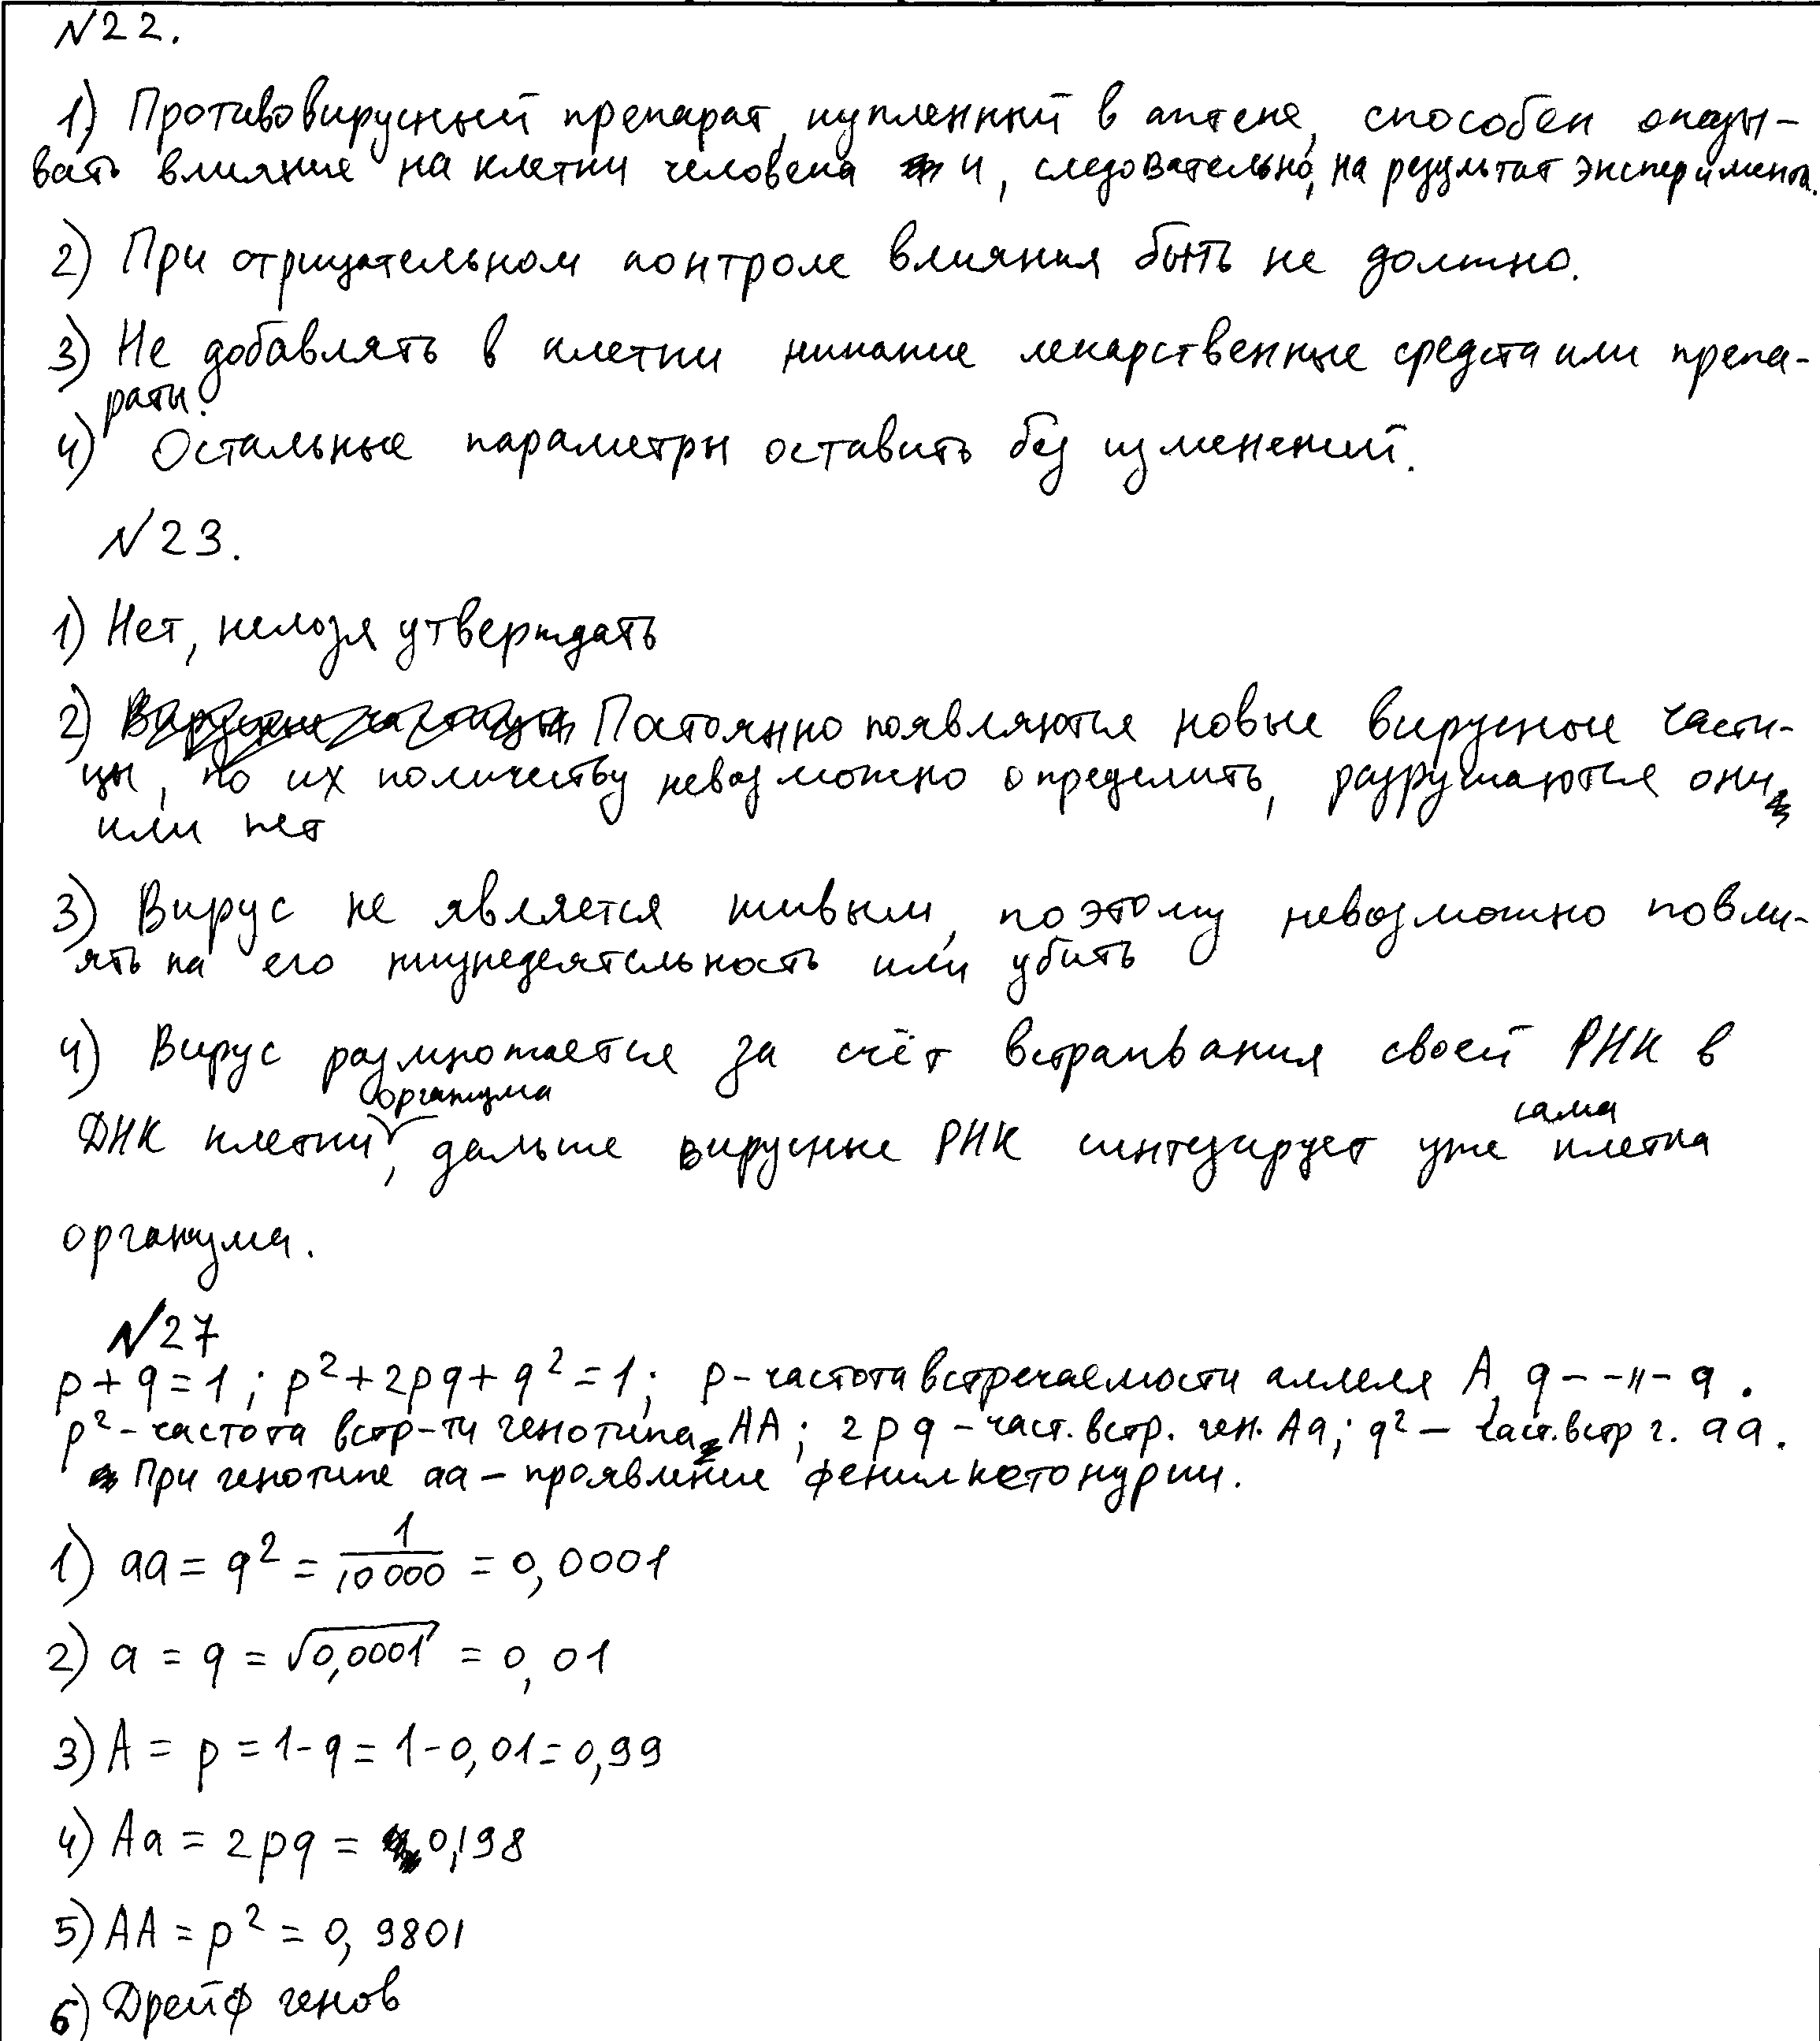 №22.
1) Противовирусный препарат, купленный в аптеке, способен оказы-
вать влияние на клетки человека и, следовательно, на результат эксперимента.
2) При отрицательном контроле влияния быть не должно.
3) Не добавлять в клетки никакие лекарственные средста или препа-
раты.
4) Остальные параметры оставить без изменений.
№23.
1) Нет, нельзя утверждать
2) Постоянно появляются новые вирусные части-
цы, по их количеству невозможно определить, разрушаются они
или нет
3) Вирус не является живым, поэтому невозможно повли-
ять на его жизнедеятельность или убить
4) Вирус размножается за счёт встраивания своей РНК в
ДНК клетки организма, дальше вирусные РНК синтезирует уже сама клетка
организма.
№27
p+q=1; p²+2pq+q²=1; p-частота встречаемости аллеля A, q - -"- a.
p²-частота встр-ти генотипа AA; 2pq-част. встр. ген. Aa; q² - част. встр г. aa.
При генотипе aa - проявление фенилкетонурии.
1) aa = q² = 1/10000 = 0,0001
2) a = q = √0,0001 = 0,01
3) A = p = 1-q = 1-0,01=0,99
4) Aa = 2pq = 0,198
5) AA = p² = 0,9801
6) Дрейф генов